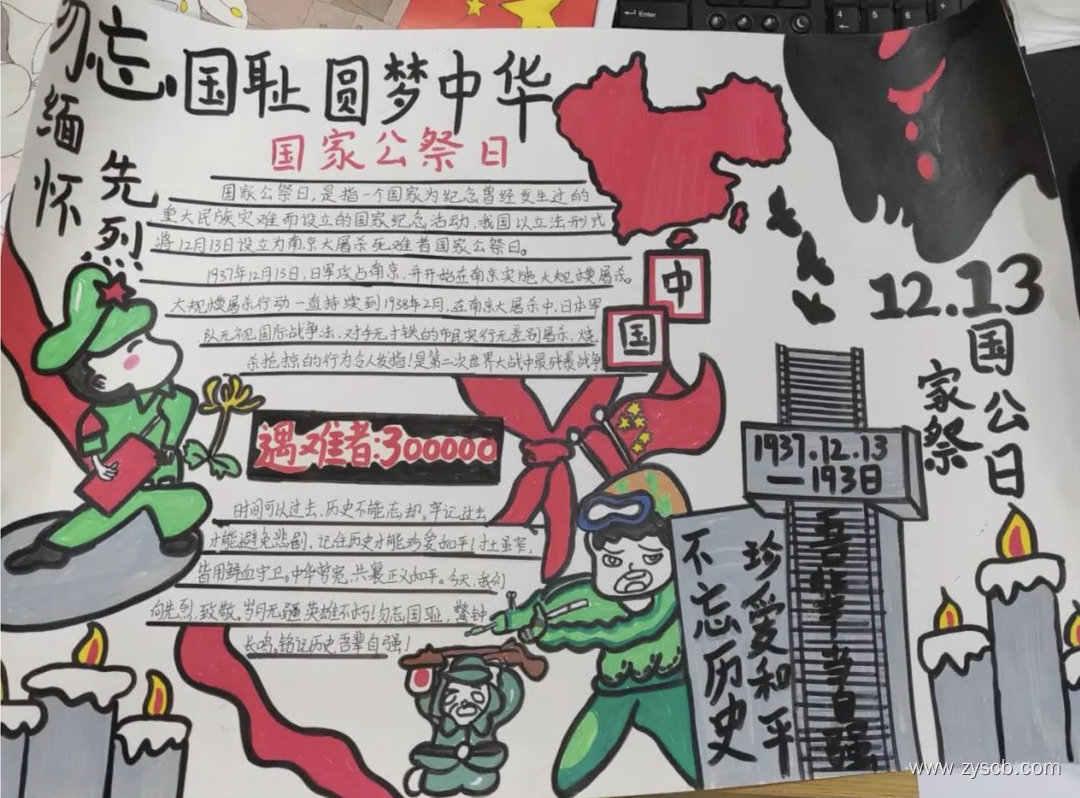 勿忘国耻 圆梦中华
缅怀
先烈
国家公祭日
国家公祭日,是指一个国家为纪念曾经发生过的
重大民族灾难而设立的国家纪念活动,我国以立法形式
将12月13日设立为南京大屠杀死难者国家公祭日。
1937年12月13日,日军攻占南京,并开始在南京实施大规模屠杀。
大规模屠杀行动一直持续到1938年2月,在南京大屠杀中,日本军
队无视国际战争法,对手无寸铁的市民实行无差别屠杀,烧
杀抢掠的行为令人发指!是第二次世界大战中最残暴战争
中
国
12.13
国
家公
祭日
遇难者:300000
时间可以过去,历史不能忘却。牢记过去
才能避免悲剧,记住历史才能珍爱和平!寸土虽窄,
皆用鲜血守卫。中华莺宪,共襄正义和平。今天,我们
向先烈致敬,岁月无疆英雄不朽!勿忘国耻,警钟
长鸣。铭记历史,吾辈自强!
1937.12.13
—1938
不忘历史
珍爱和平
吾辈当自强
Enter
4
5
6
+
www.zyscb.com